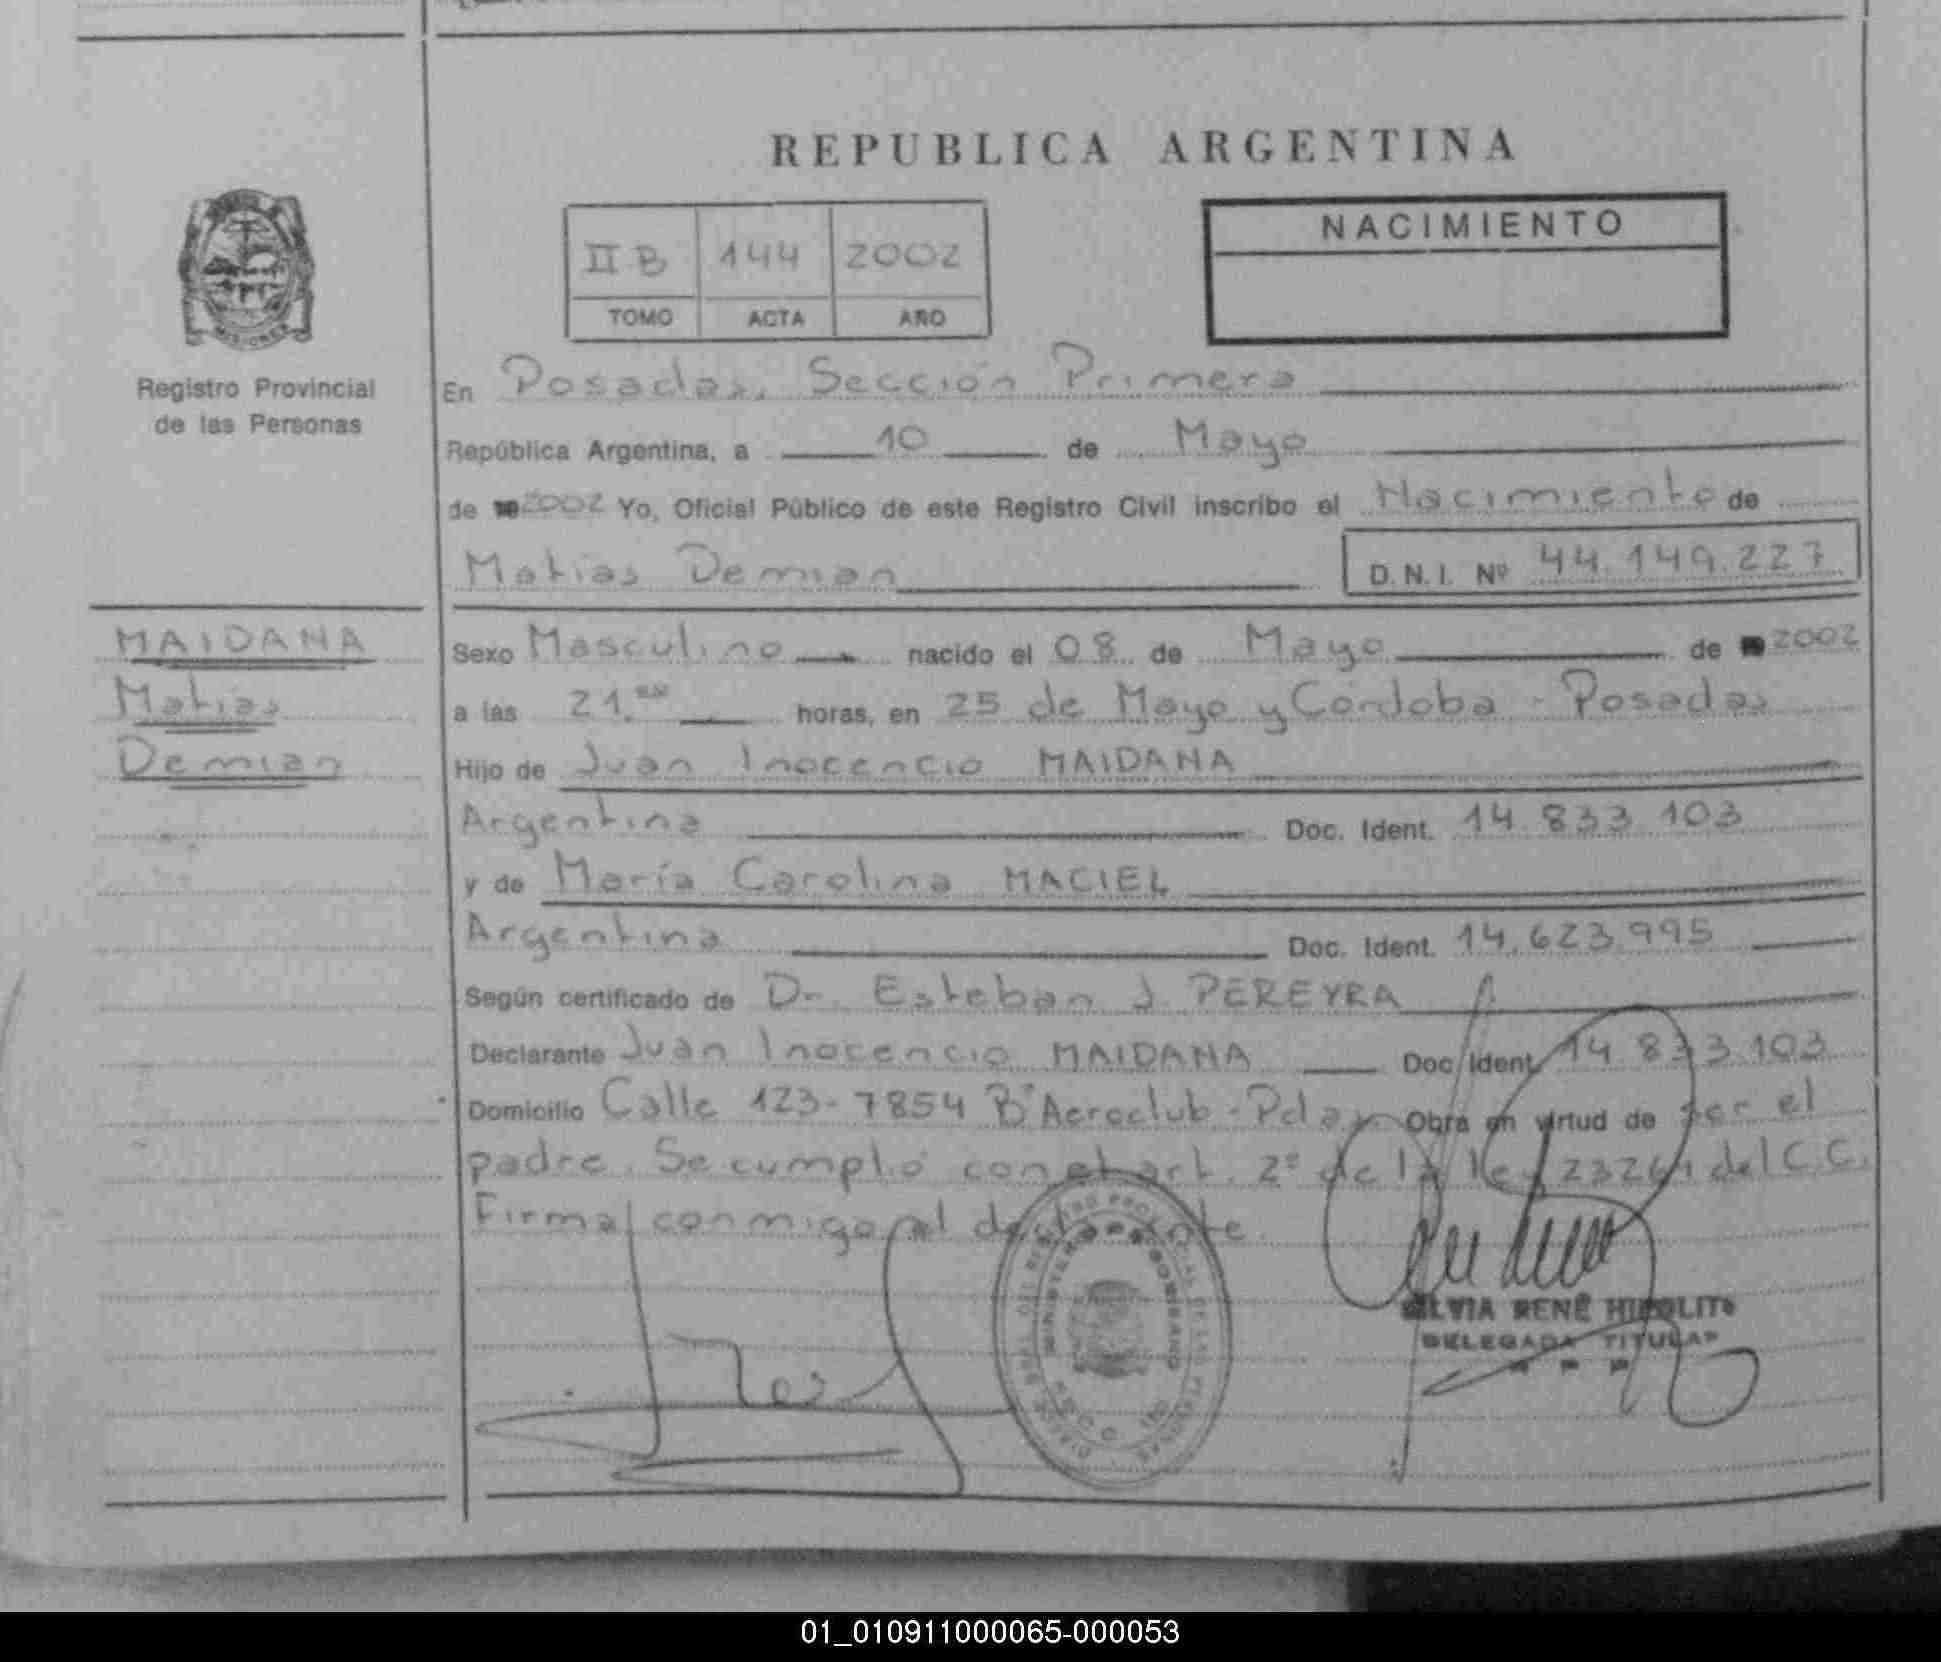 REPUBLICA ARGENTINA
II B 144 2002
TOMO ACTA AÑO
NACIMIENTO
MISIONES
Registro Provincial
de las Personas
En Posadas, Sección Primera
República Argentina, a 10 de Mayo
de 2002 Yo, Oficial Público de este Registro Civil inscribo el Nacimiento de
Matias Demian D.N.I. Nº 44.149.227
MAIDANA
Matias
Demian
Sexo Masculino nacido el 08 de Mayo de 2002
a las 21. horas, en 25 de Mayo y Córdoba - Posadas
Hijo de Juan Inocencio MAIDANA
Argentina Doc. Ident. 14.833.103
y de María Carolina MACIEL
Argentina Doc. Ident. 14.623.995
Según certificado de Dr. Esteban J. PEREYRA
Declarante Juan Inocencio MAIDANA Doc Ident 14.833.103
Domicilio Calle 123-7854 Bº Aeroclub - Pdas Obra en virtud de ser el
padre. Se cumplió con el art. 2º de la ley 23264 del C.C.
Firma conmigo el declarante.
SILVIA RENÉ HIPOLITO
DELEGADA TITULAR
01_010911000065-000053